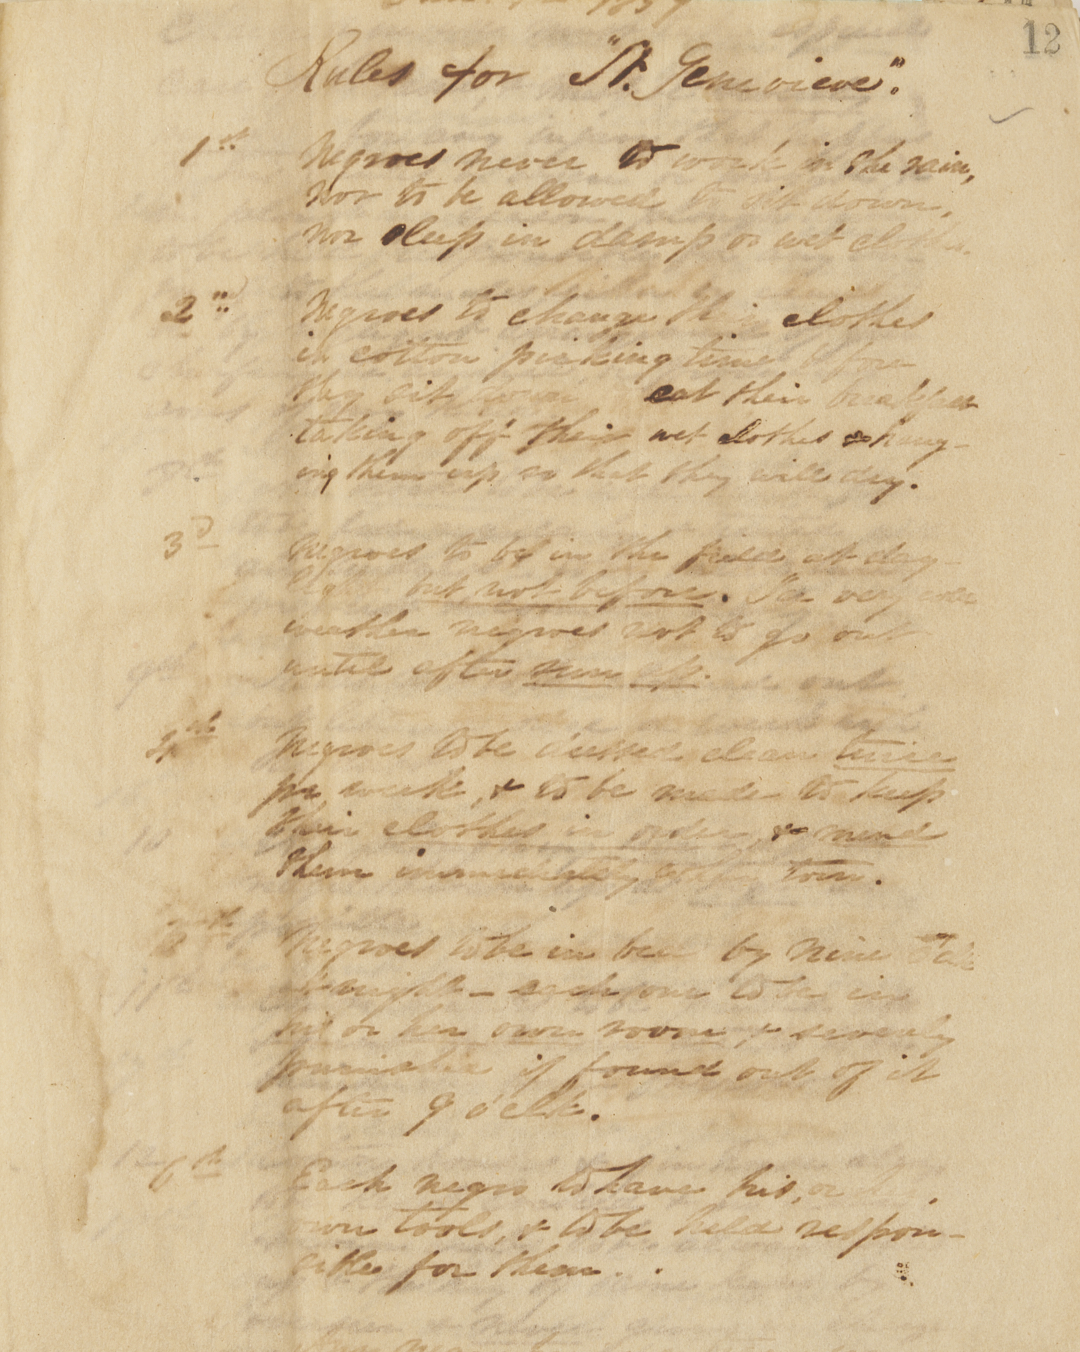 12
Rules for "St. Genevieve".
1st Negroes never to work in the rain,
nor to be allowed to sit down,
nor sleep in damp or wet clothes.
2nd Negroes to change their clothes
in cotton picking time before
they sit down eat their breakfast
taking off their wet clothes & hang-
ing them up so that they will dry.
3d Negroes to be in the field at day-
light but not before. In very cold
weather negroes not to go out
until after sun up.
4th Negroes to be dressed clean twice
pr week, & to be made to keep
their clothes in order, & mend
them immediately when torn.
5th Negroes to be in bed by nine
at night - each one to be in
his or her own room & severely
punished if found out of it
after 9 o'clk.
6th Each negro to have his, or her
own tools, & to be held respon-
sible for them.